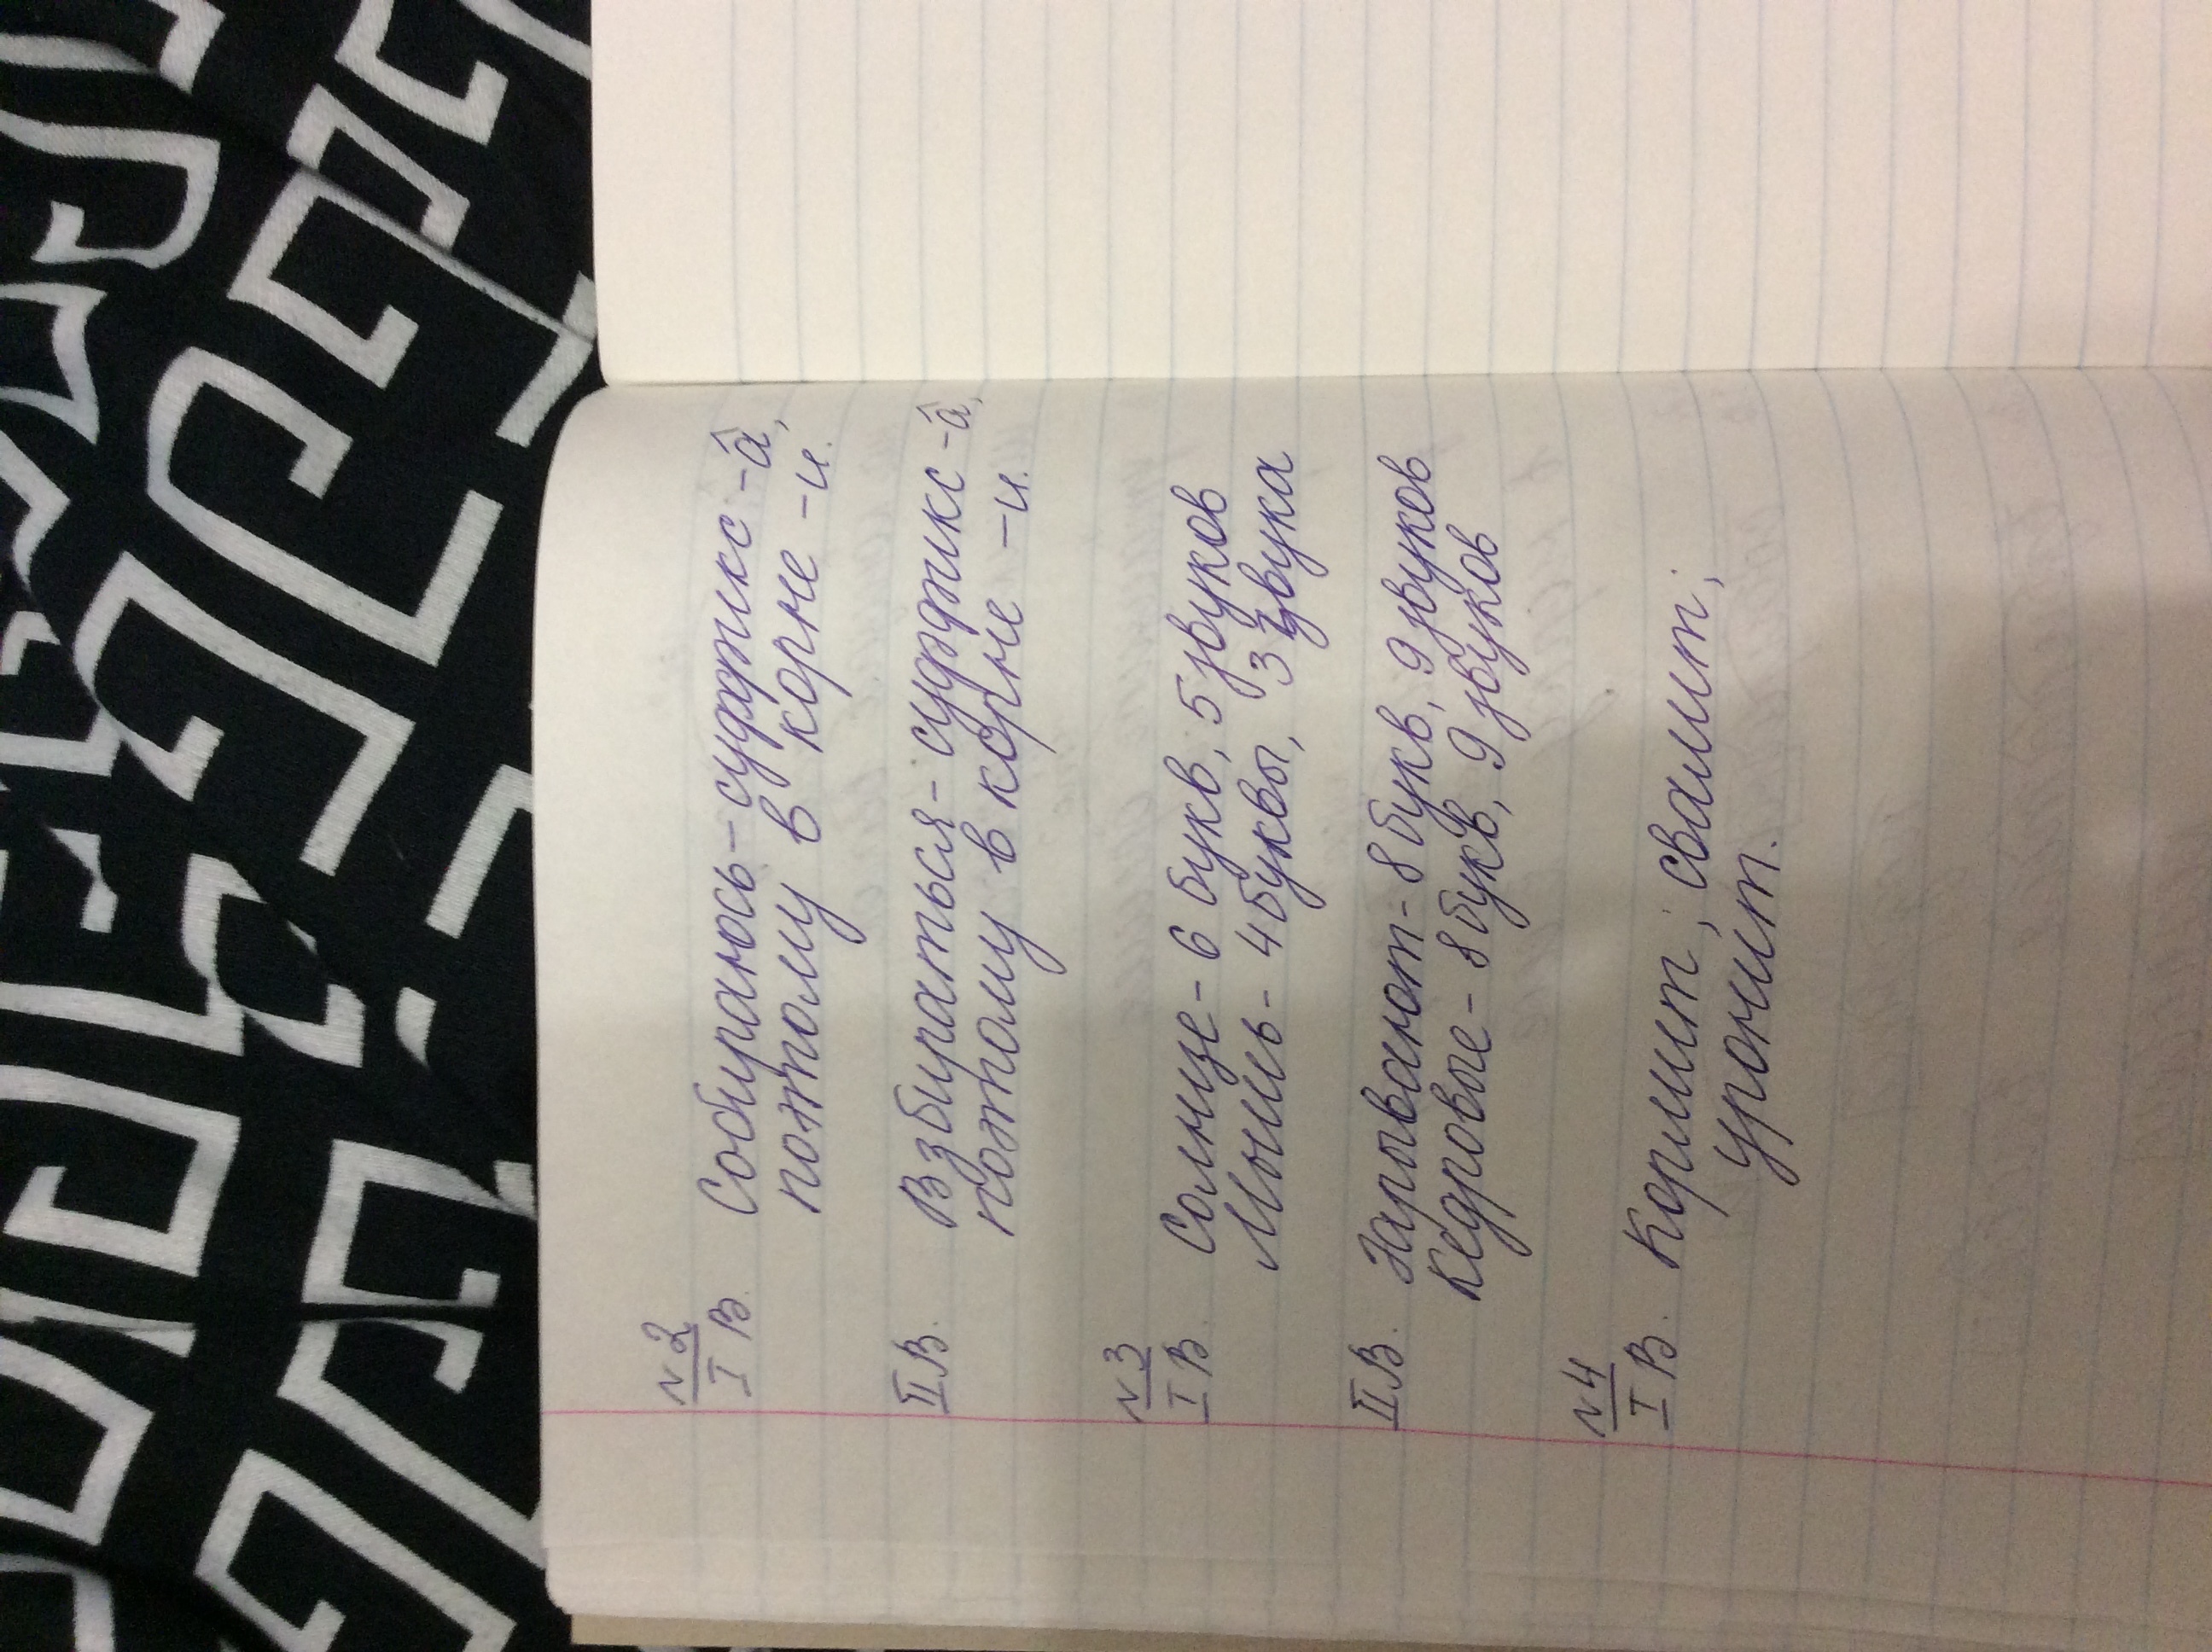 N 2
I В. Собираюсь - суффикс -а,
потому в корне - и.
II В. Взбираться - суффикс -а,
потому в корне - и.
N 3
I В. Солнце - 6 букв, 5 звуков
Мышь - 4 буквы, 3 звука
II В. Зарывают - 8 букв, 9 звуков
Кедровые - 8 букв, 9 звуков
N 4
I В. Кормит ; свалит ;
уронит.